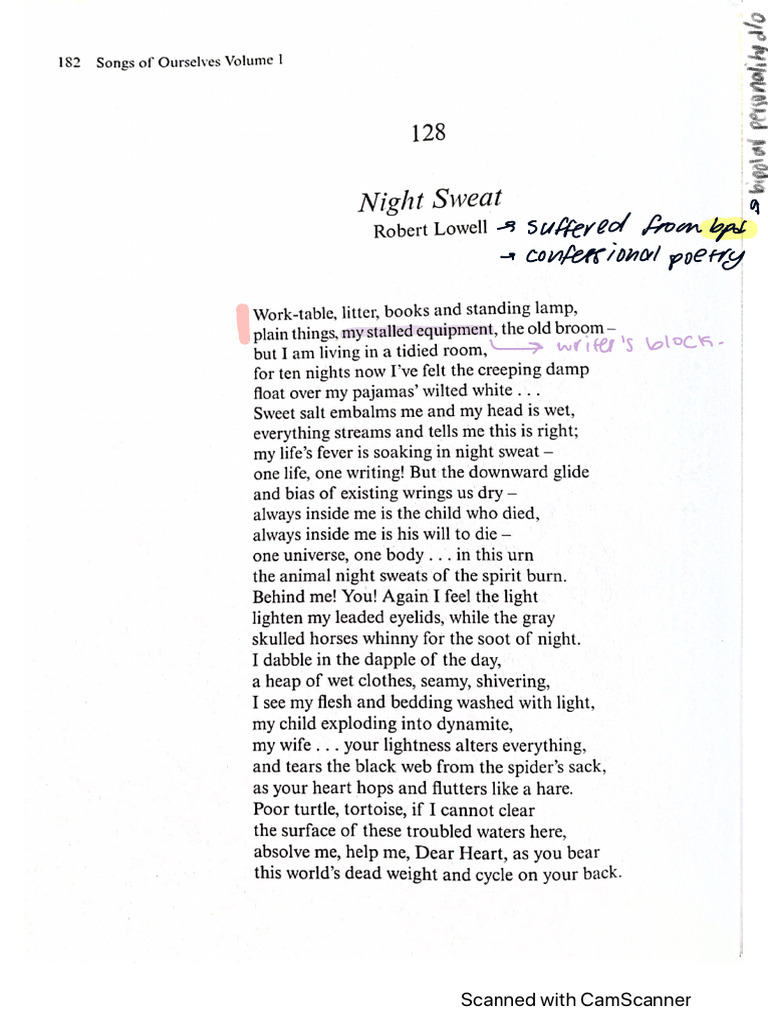 182 Songs of Ourselves Volume 1
128
Night Sweat
Robert Lowell → suffered from bpd
→ bipolar personality d/o
→ confessional poetry
Work-table, litter, books and standing lamp,
plain things, my stalled equipment, the old broom –
→ writer's block.
but I am living in a tidied room,
for ten nights now I've felt the creeping damp
float over my pajamas' wilted white . . .
Sweet salt embalms me and my head is wet,
everything streams and tells me this is right;
my life's fever is soaking in night sweat –
one life, one writing! But the downward glide
and bias of existing wrings us dry –
always inside me is the child who died,
always inside me is his will to die –
one universe, one body . . . in this urn
the animal night sweats of the spirit burn.
Behind me! You! Again I feel the light
lighten my leaded eyelids, while the gray
skulled horses whinny for the soot of night.
I dabble in the dapple of the day,
a heap of wet clothes, seamy, shivering,
I see my flesh and bedding washed with light,
my child exploding into dynamite,
my wife . . . your lightness alters everything,
and tears the black web from the spider's sack,
as your heart hops and flutters like a hare.
Poor turtle, tortoise, if I cannot clear
the surface of these troubled waters here,
absolve me, help me, Dear Heart, as you bear
this world's dead weight and cycle on your back.
Scanned with CamScanner